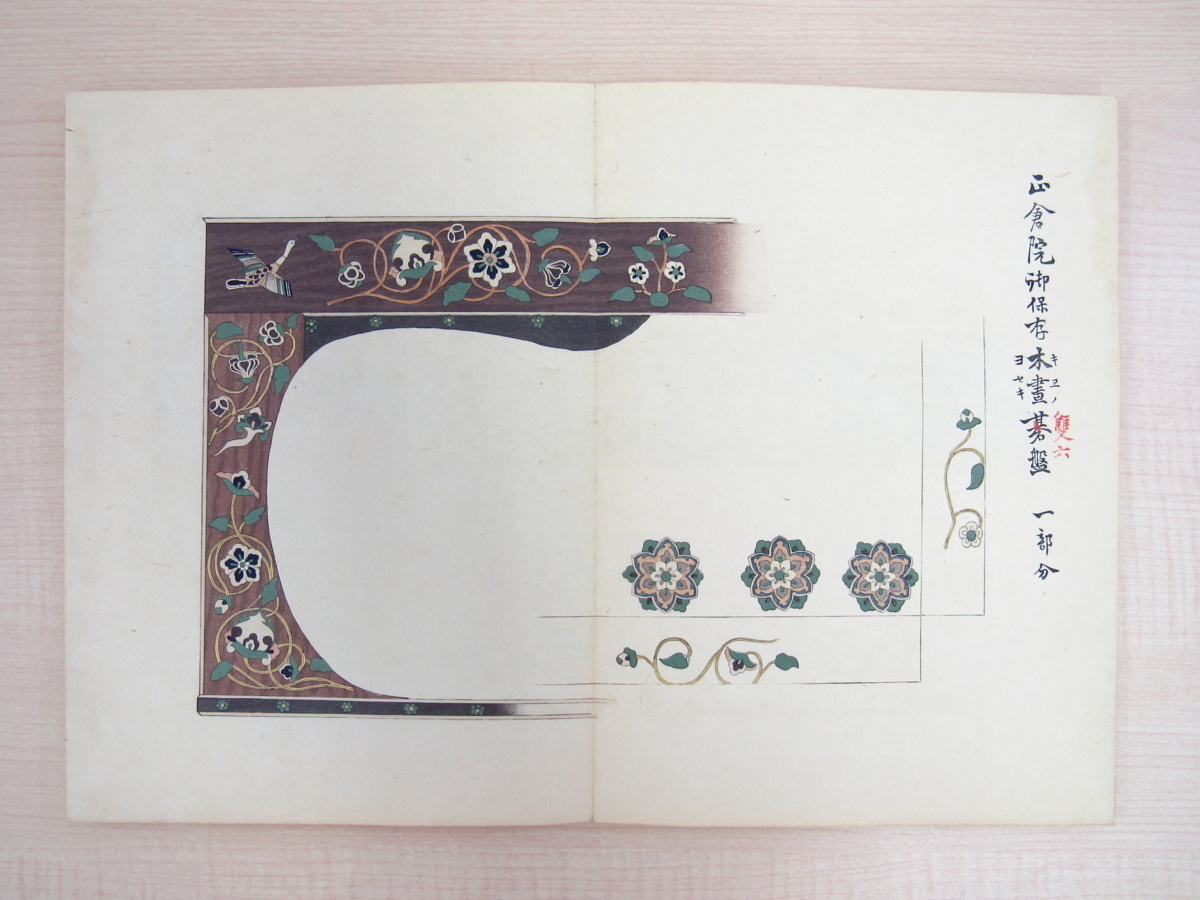 正倉院御保存木畫碁盤 一部分
キヱノ
ヨセキ
雙六